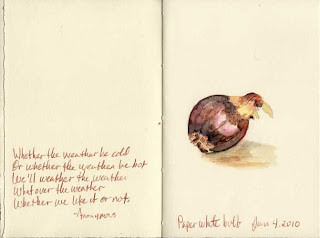 Whether the weather be cold
Or whether the weather be hot
We'll weather the weather
Whatever the weather
Whether we like it or not.
Anonymous
Paper white bulb Jan 4, 2010